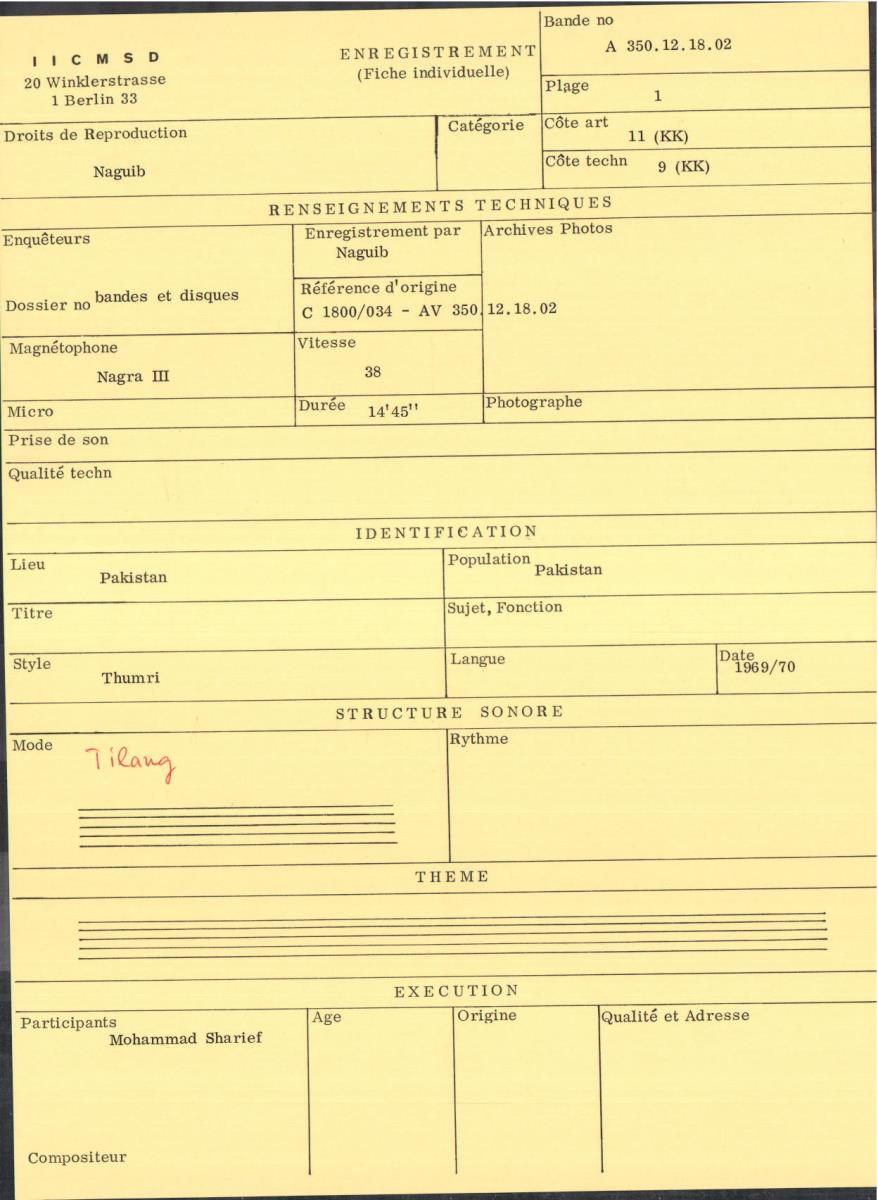 I I C M S D
20 Winklerstrasse
1 Berlin 33
ENREGISTREMENT
(Fiche individuelle)
Bande no
A 350.12.18.02
Plage
1
Droits de Reproduction
Naguib
Catégorie
Côte art
11 (KK)
Côte techn
9 (KK)
RENSEIGNEMENTS TECHNIQUES
Enquêteurs
Enregistrement par
Naguib
Archives Photos
Dossier no bandes et disques
Référence d'origine
C 1800/034 - AV 350.12.18.02
Magnétophone
Nagra III
Vitesse
38
Micro
Durée 14'45''
Photographe
Prise de son
Qualité techn
IDENTIFICATION
Lieu
Pakistan
Population
Pakistan
Titre
Sujet, Fonction
Style
Thumri
Langue
Date
1969/70
STRUCTURE SONORE
Mode
Tilang
Rythme
THEME
EXECUTION
Participants
Mohammad Sharief
Age
Origine
Qualité et Adresse
Compositeur